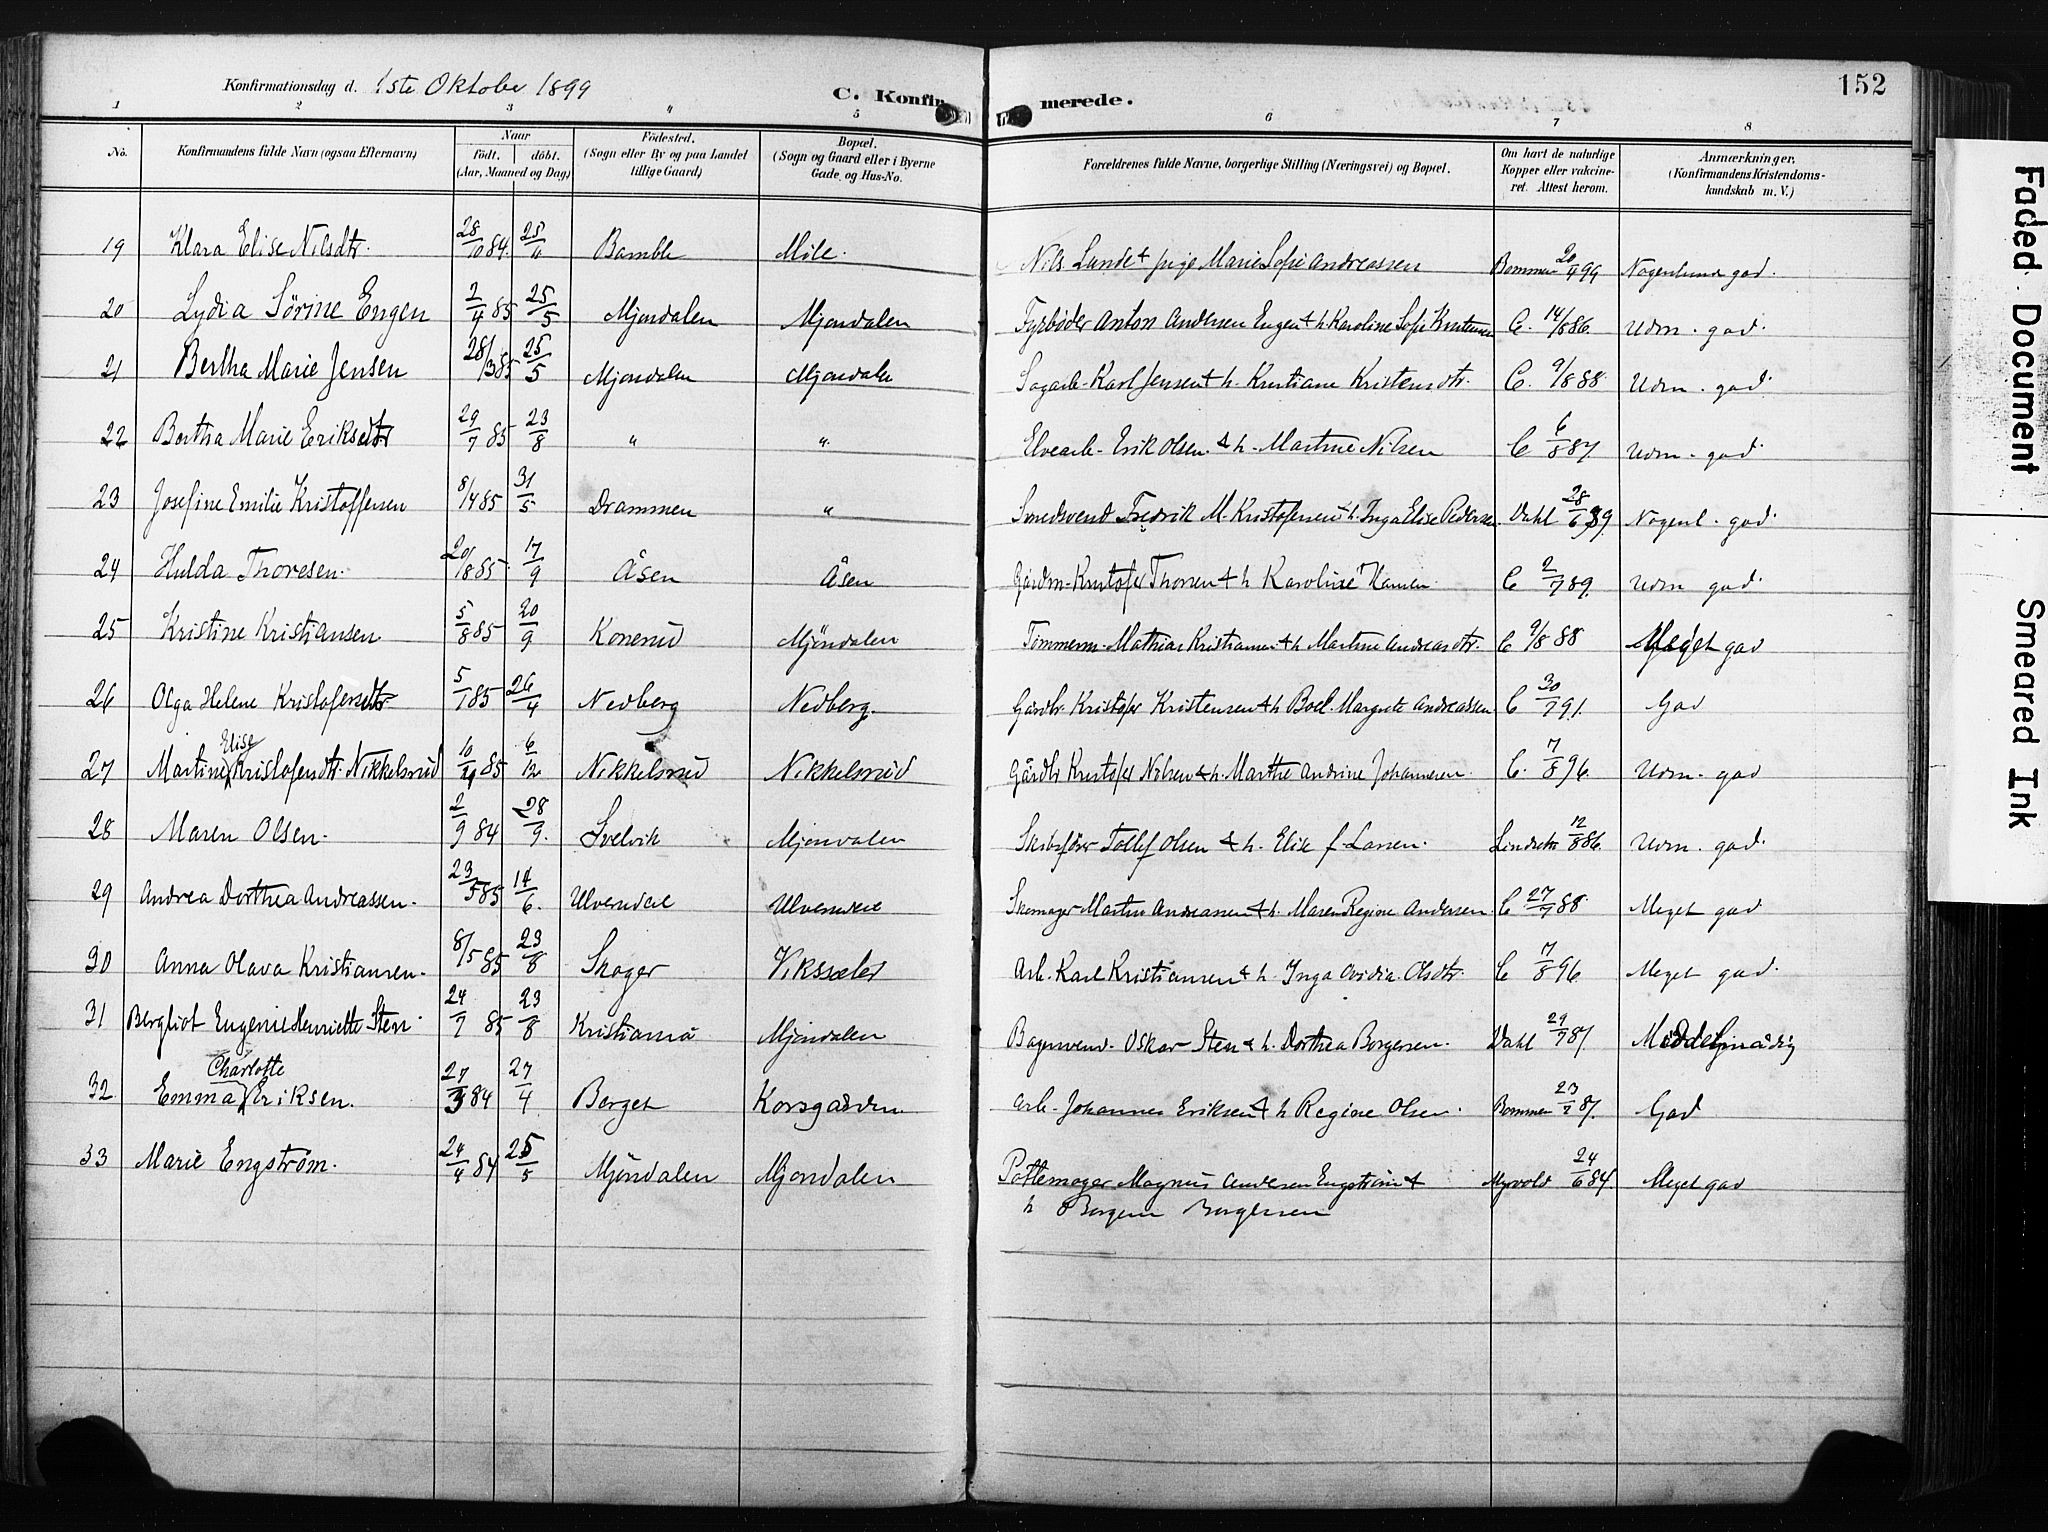 152
Konfirmationsdag d. 1ste Oktober 1899
C. Konfirmerede.
1 2 3 " 5 6 7 8
No. Konfirmandens fulde Navn (ogsaa Efternavn) Naar födt. döbt. (Aar, Maaned og Dag) Födested. (Sogn eller By og paa Landet tillige Gaard) Bopæl. (Sogn og Gaard eller i Byerne Gade og Hus-No. Forældrenes fulde Navne, borgerlige Stilling (Næringsvei) og Bopæl. Om havt de naturlige Kopper eller vakcineret. Attest herom. Anmærkninger. (Konfirmandens Kristendomskundskab m. V.)
19 Klara Elise Nilsdtr. 28/10 84. 25/11 Bamble Mile. Nils Lunde & pige Marie Sofie Andreassen Bommen 20/9 99 Nogenlunde god.
20 Lydia Sörine Engen 2/4 85 25/5 Mjondalen Mjondalen Fyrböder Anton Andersen Engen & h. Karoline Sofie C. 14/8 86. Udm. god.
21 Bertha Marie Jensen 28/3 85 25/5 Mjondalen Mjondalen Sagarb. Karl Jensen & h. Kristiane Kristensdtr. C. 9/8 88. Udm. god.
22 Bertha Marie Eriksdtr 29/7 85 23/8 " " Elvearb. Erik Olsen & h. Martine Nilsen C 6/8 87. Udm. god.
23 Josefine Emilie Kristoffersen 8/4 85 31/5 Drammen " Smedsvend Fredrik M. Kristofersen & h. Inga Elise Pedersen Dahl 28/6 89. Nogenl. god.
24 Hulda Thoresen. 20/8 85 17/9 Åsen Åsen Gårdm. Kristofer Thoresen & h Karoline Hansen. C 2/7 89. Udm god.
25 Kristine Kristiansen 5/8 85 20/9 Konerud Mjöndalen Tömmerm. Mathias Kristiansen & h Martine Andreasdtr. C 9/8 88 Meget god
26 Olga Helene Kristofersdtr 5/1 85 26/4 Nedberg Nedberg. Gårdbr. Kristofer Kristensen & h Boel Margrete Andreassen C 30/7 91. God
27 Martine Elise Kristofersdtr. Nikkelsrud 10/ 85 6/12 Nikkelsrud Nikkelsrud Gårdbr Kristofer Nilsen & h. Marthe Andrine Johannesen C. 7/8 96. Udm. god
28 Maren Olsen. 2/9 84 28/9. Svelvik Mjondalen Skibsförer Tollef Olsen & h. Elise f. Larsen. 12/8 86. Udm. god.
29 Andrea Dorthea Andreassen. 23/5 85 14/6. Skomager Martin Andreassen & h. Maren Regine Andersen. C 27/7 88. Meget god
30 Anna Olava Kristiansen. 8/5 85 23/8 Skoger Vikssæter Arb. Karl Kristiansen & h. Inga Ovidia Olsdtr. C 7/8 96. Meget god.
31 Bergliot Eugenie Henriette Sten. 24/7 85 23/8 Kristiania Mjöndalen Bagersvend. Oskar Sten & h. Dorthea Borgersen. Dahl 29/7 87. Middelmådig
32 Emma Charlotte Eriksen. 27/3 84 27/4 Berget Korsgården Arb. Johannes Eriksen & h Regine Olsen. Bommen 23/7 87. God
33 Marie Engström. 24/4 84 25/5 Mjöndalen Mjondalen Pottemager Magnus Andersen Engström & Myrvold 24/6 84. Meget god
h Borgersen
Faded Document Smeared Ink